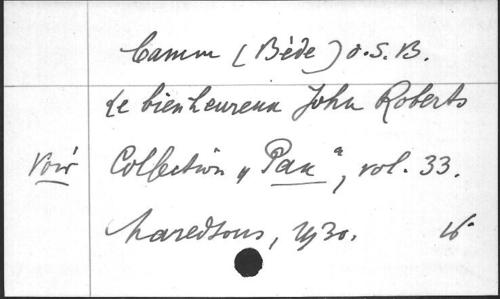 Camm (Bède) O.S.B.
Le bienheureux John Roberts
Voir Collection „Pax“, vol. 33.
Maredsous, 1930. 16°